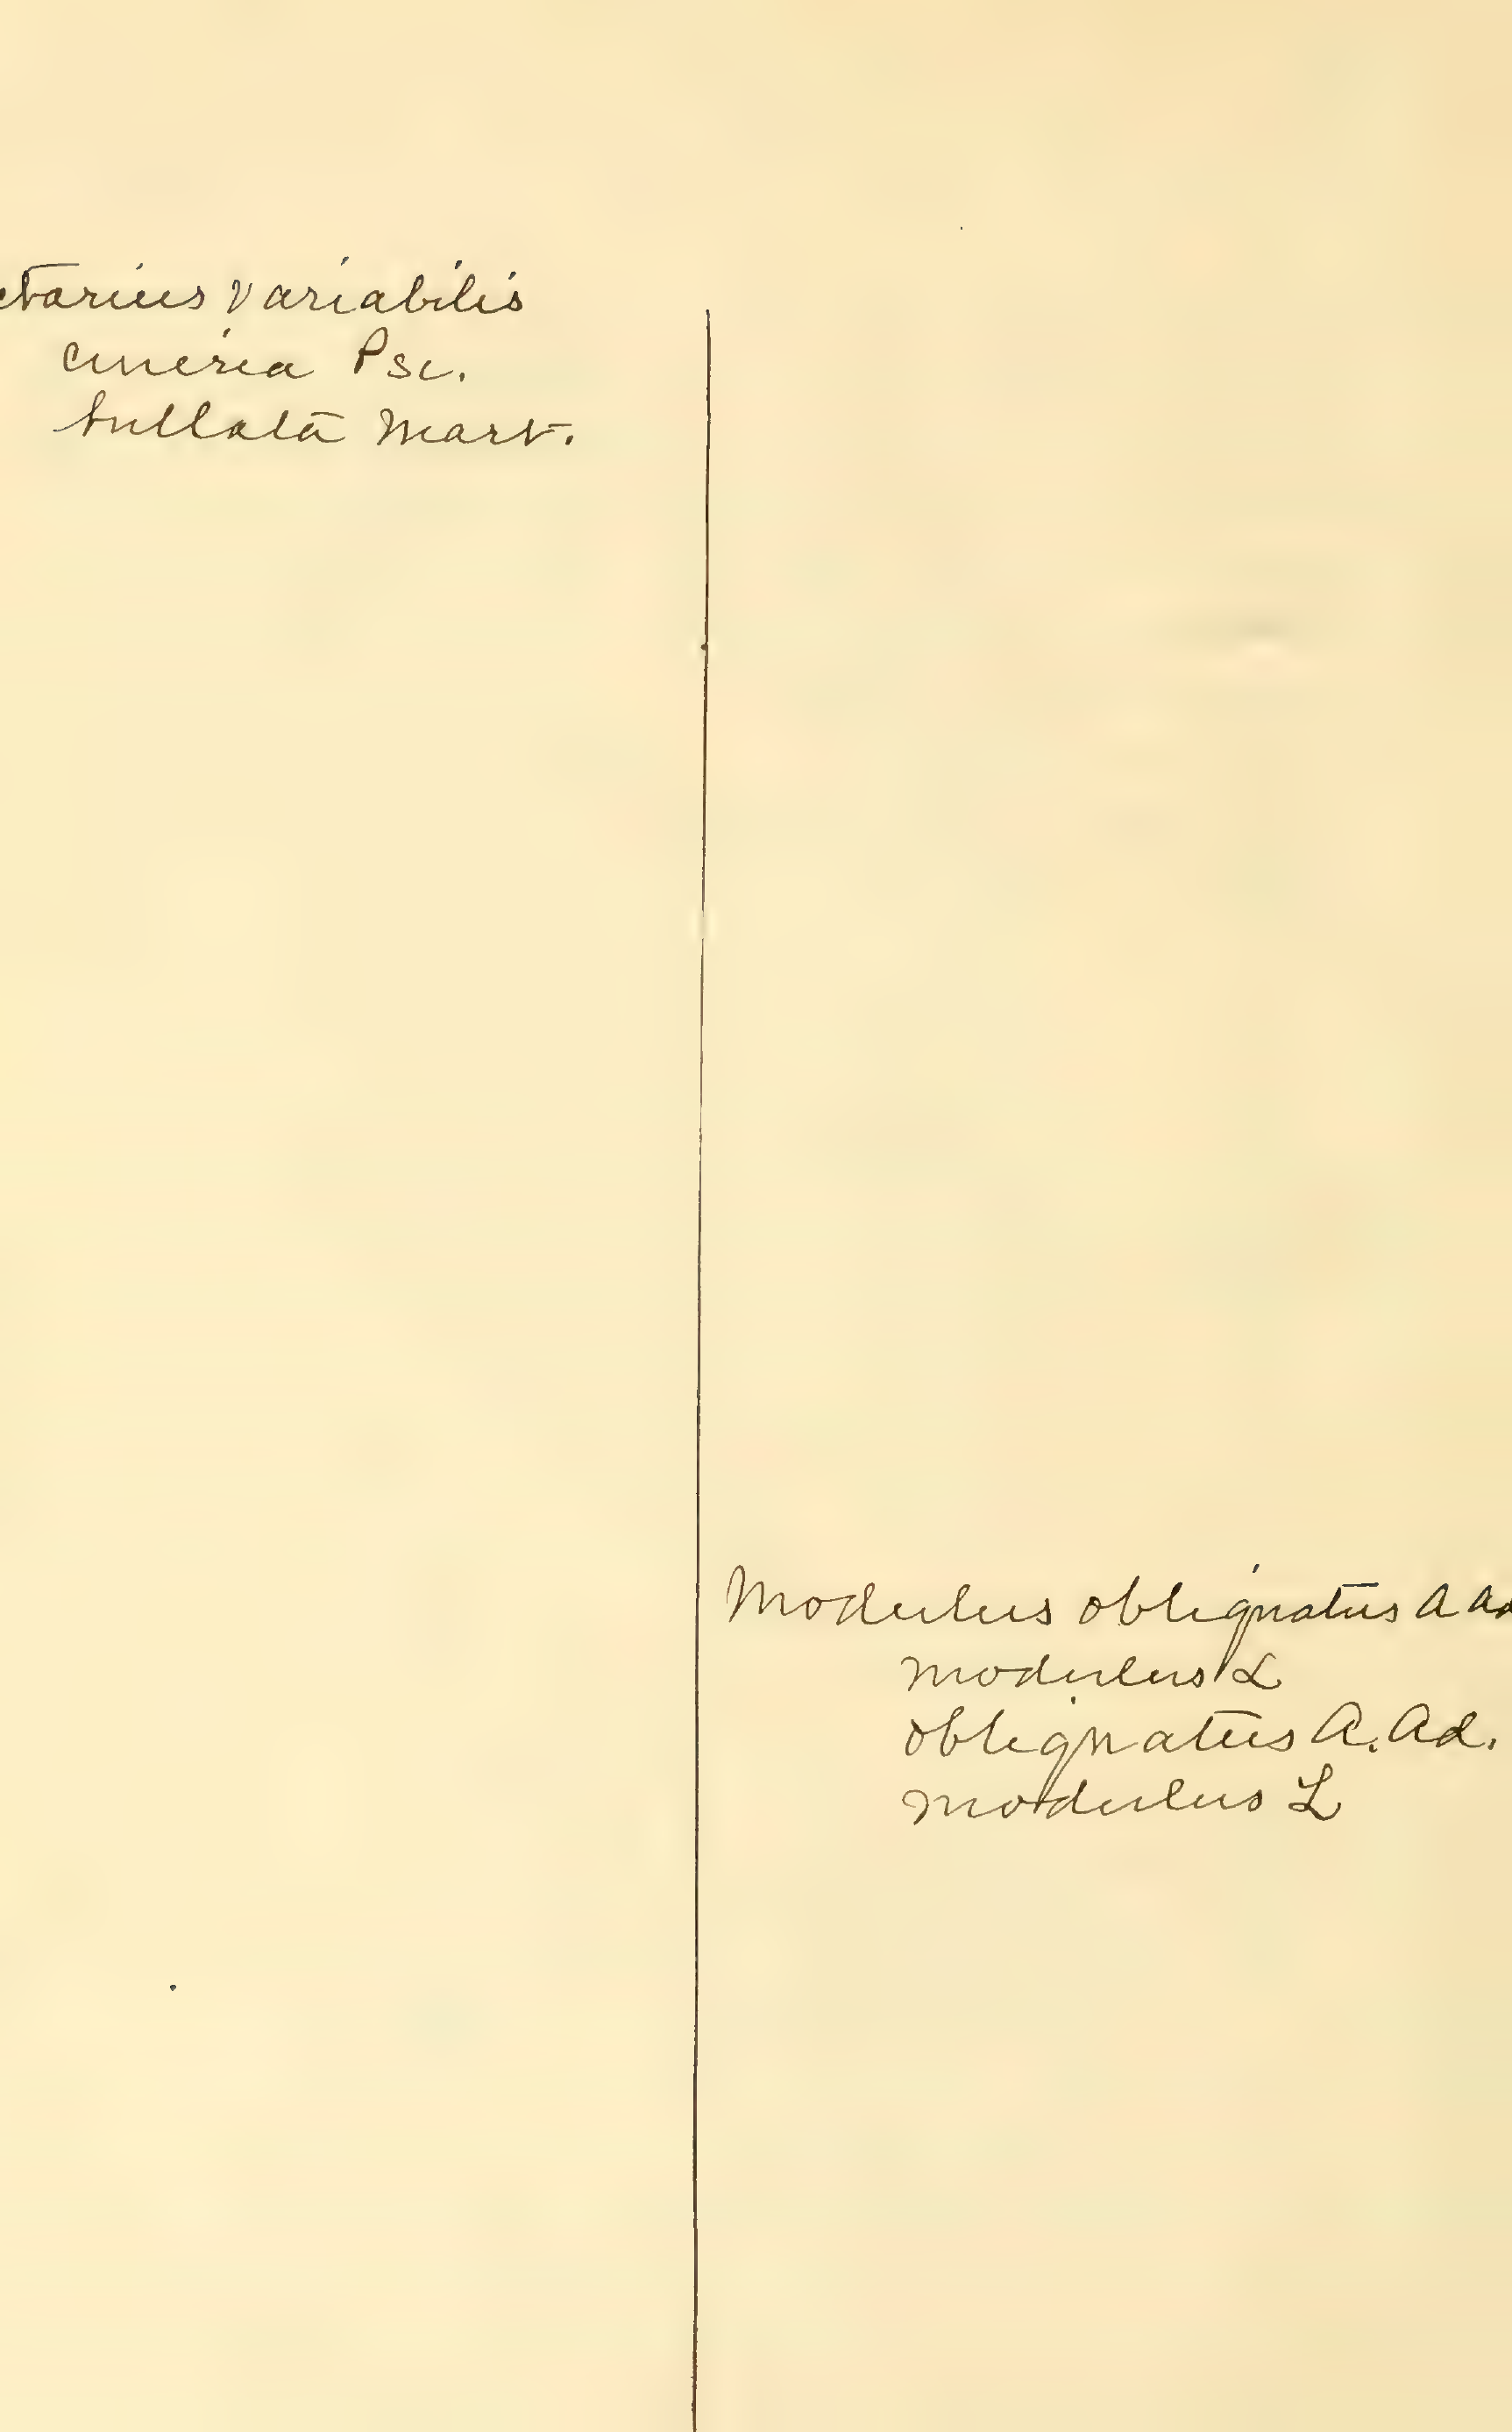 ctarius variabilis
cineria Pse.
bullata Mart.
Modulus obliqnatus A Ad
modulus L
obliqnatus A. Ad.
modulus L